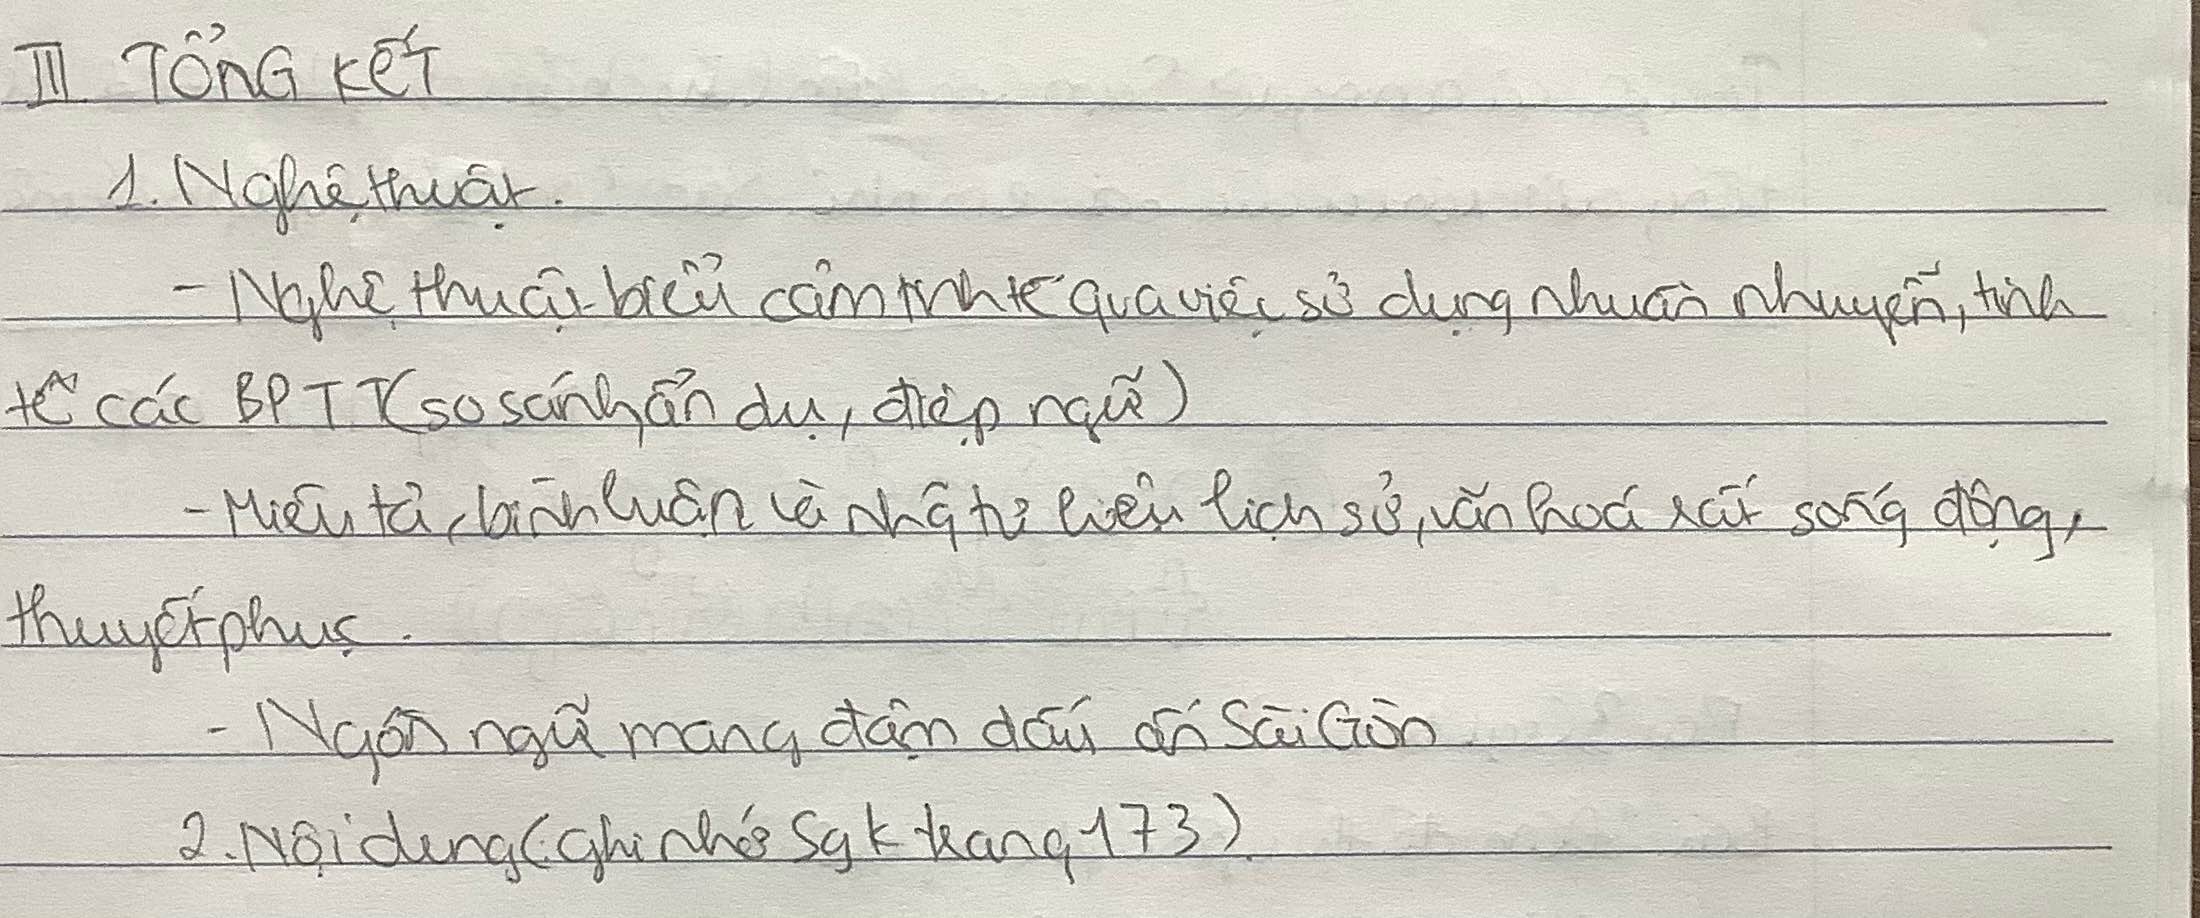 III TỔNG KẾT
1. Nghệ thuật.
- Nghệ thuật biểu cảm tinh tế qua việc sử dụng nhuần nhuyễn, tinh
tế các BPTT (so sánh, ẩn dụ, điệp ngữ)
- Miêu tả, bình luận và tư liệu lịch sử, văn hoá rất sống động,
thuyết phục.
- Ngôn ngữ mang đậm dấu ấn Sài Gòn
2. Nội dung (ghi nhớ Sgk trang 173)